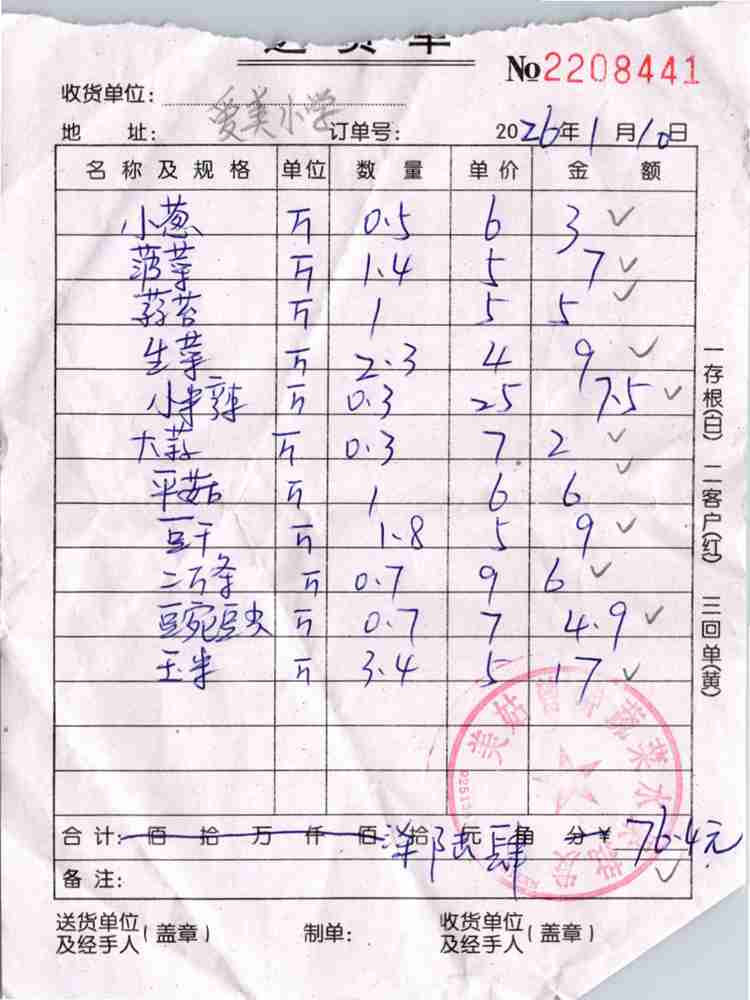 送货单
№2208441
收货单位: 爱美小学
地 址: 订单号: 2026年1月10日
名称及规格 单位 数量 单价 金额
小葱 斤 0.5 6 3 ✓
菠菜 斤 1.4 5 7 ✓
蒜苔 斤 1 5 5 ✓
生菜 斤 2.3 4 9 ✓
小米辣 斤 0.3 25 7.5 ✓
大蒜 斤 0.3 7 2 ✓
平菇 斤 1 6 6 ✓
豆干 斤 1.8 5 9 ✓
二万条 斤 0.7 9 6 ✓
豆宛豆尖 斤 0.7 7 4.9 ✓
玉米 斤 3.4 5 17 ✓
合计: 佰 拾 万 仟 佰 拾 元 角 分 ¥ 76.4元
备注: ✓
送货单位及经手人(盖章) 制单: 收货单位及经手人(盖章)
一存根(白) 二客户(红) 三回单(黄)